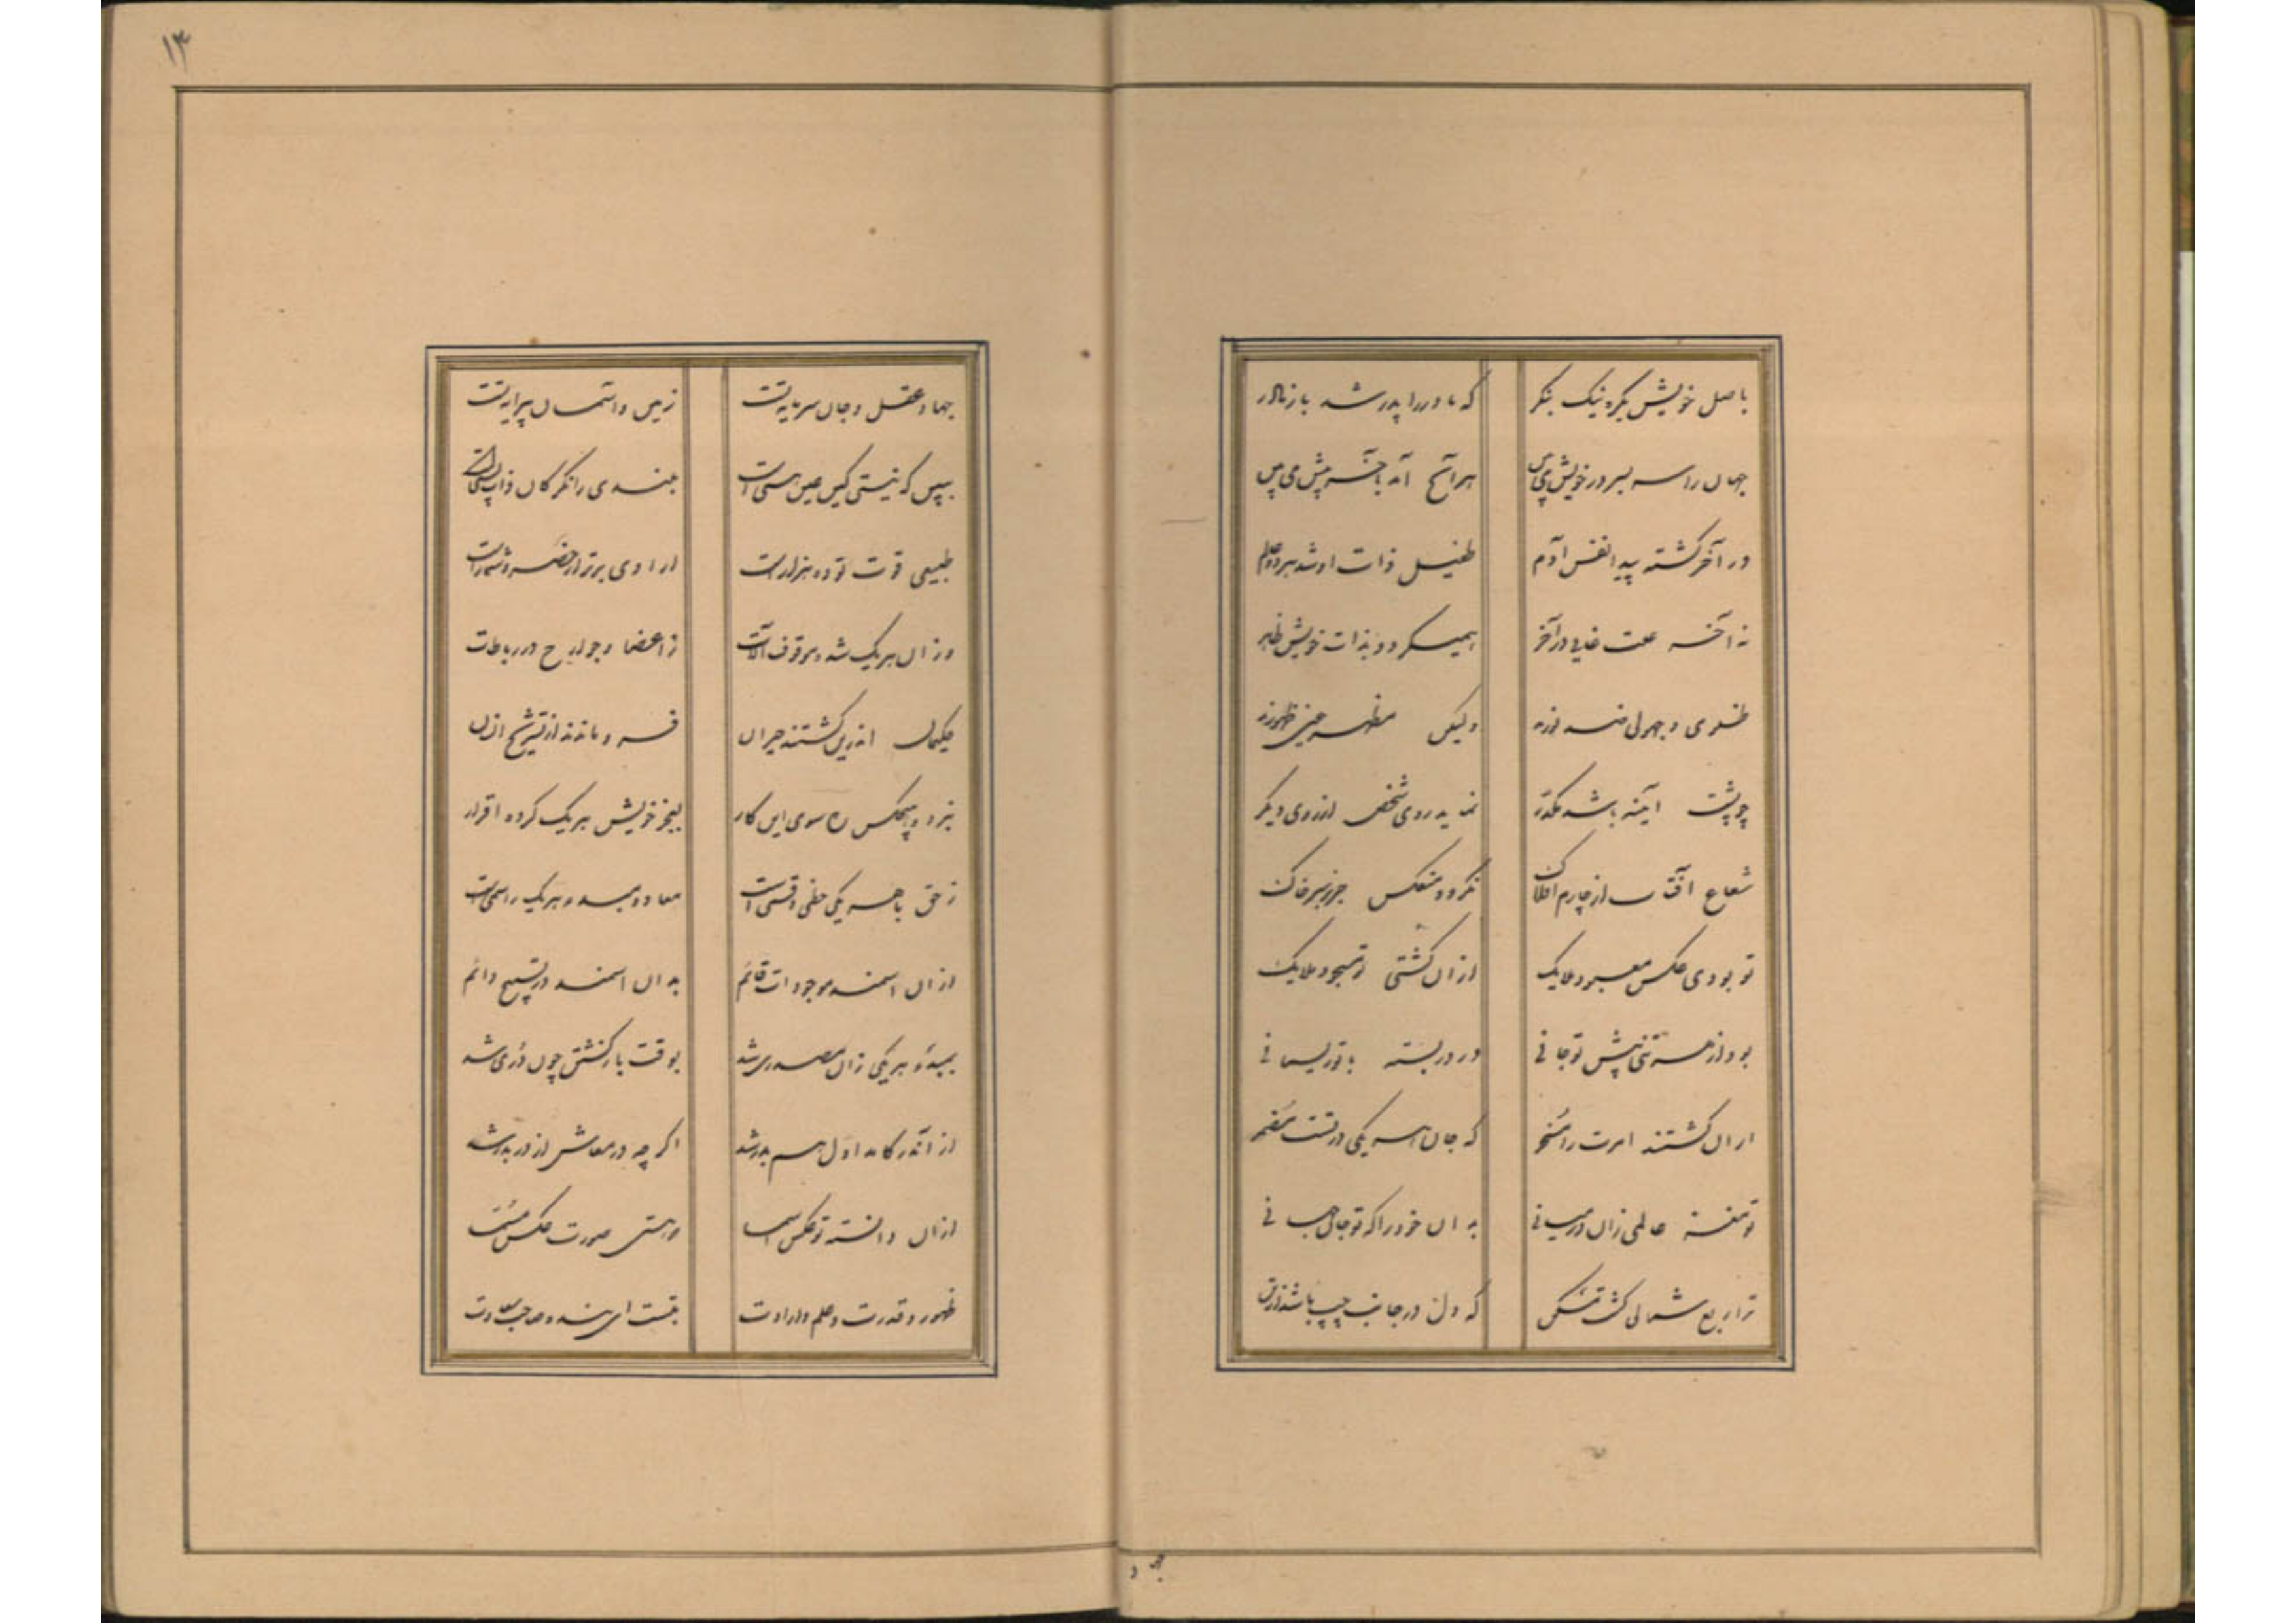 باصل خویش یکره نیک بنکر که مادر را پدر شد باز مادر
جهان را سر بسر در خویش می بین هر آنچ آمد باخر پیش می بین
در آخر کشته پیدا نفس آدم طفیل ذات او شد هر دو عالم
نه آخر علت غایی در آخر همیگردد بذات خویش ظاهر
ظلومی و جهولی ضد نورند ولیکن مظهر عین ظهورند
چو پشت آینه باشد مکدّر نماید روی شخص از روی دیکر
شعاع افتاب از چارم افلاک نکردد منعکس جز بر سر خاک
تو بودی عکس معبود ملایک از ان کشتی تو مسجود ملایک
بود از هر تنی پیش تو جانی در در بسته با تو ریسمانی
از ان کشتند امرت را مسخّر که جان هر یکی در تست مُضمر
تو مغز عالمی زان در میانی بدان خود را که تو جان جهانی
ترا ربع شمالی کشت مسکن که دل در جانب چپ باشد از تن
جهان و عقل و جان سرمایه تست زمین و آسمان پیرایه تست
ببین که نیستی کین عین هستی است بلندی را نکر کان ذات پستی است
طبیعی قوت تو ده هزار است ارادی برتر از حصر و شمار است
وز ان هر یک شده موقوف آلات ز اعضا و جوارح در رباطات
حکیمان اندرین کشتند حیران فرو ماندند از تشریح انسان
نبرده هیچکس ره سوی این کار بعجز خویش هر یک کرده اقرار
ز حق با هر یکی حظی و قسمی است معاد و مبدء هر یک را اسمی است
از ان اسمند موجودات قائم بدان اسمند در تسبیح دائم
بمبدء هر یکی زان مصدری شد بوقت بازکشتن چون دری شد
از آندر کامد اوّل هم بدر شد اکر چه در معاش از در بدر شد
ازان دانسته تو عکس اسما که هستی صورت عکس مُسمّا
ظهور و قدرت و علم و ارادت بتست ای بنده صاحب سعادت
۱۳